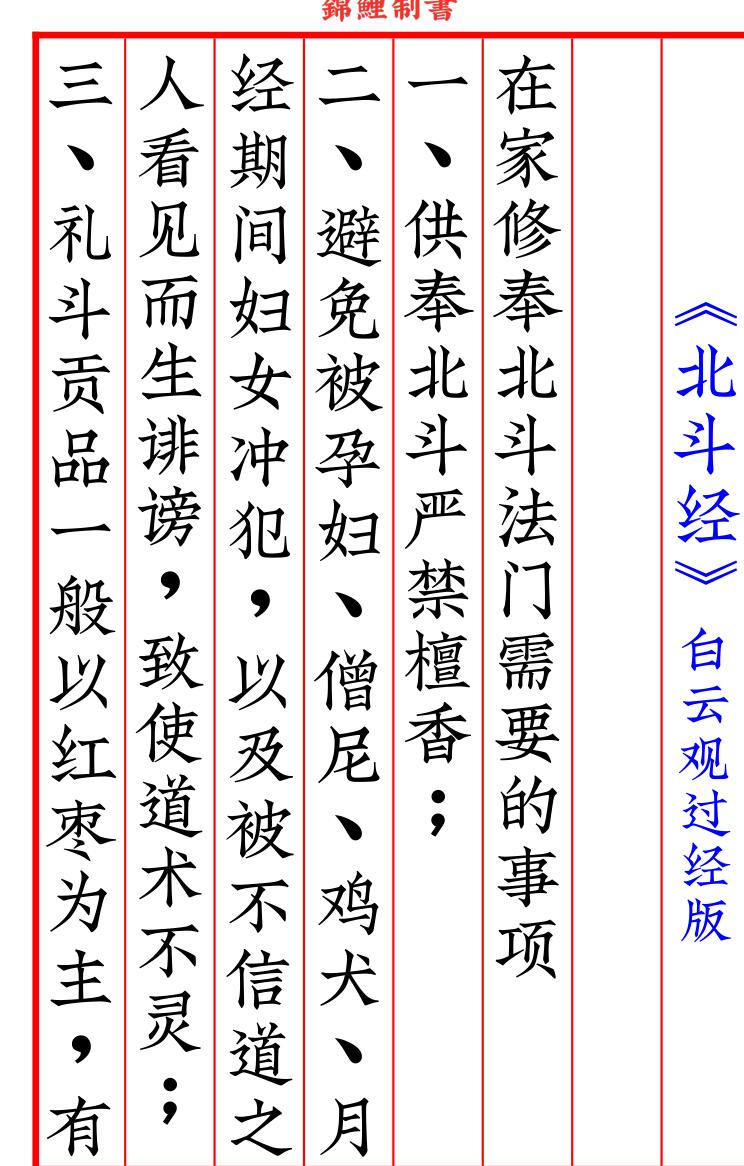 錦鯉制書
《北斗经》白云观过经版
在家修奉北斗法门需要的事项
一、供奉北斗严禁檀香；
二、避免被孕妇、僧尼、鸡犬、月
经期间妇女冲犯，以及被不信道之
人看见而生诽谤，致使道术不灵；
三、礼斗贡品一般以红枣为主，有